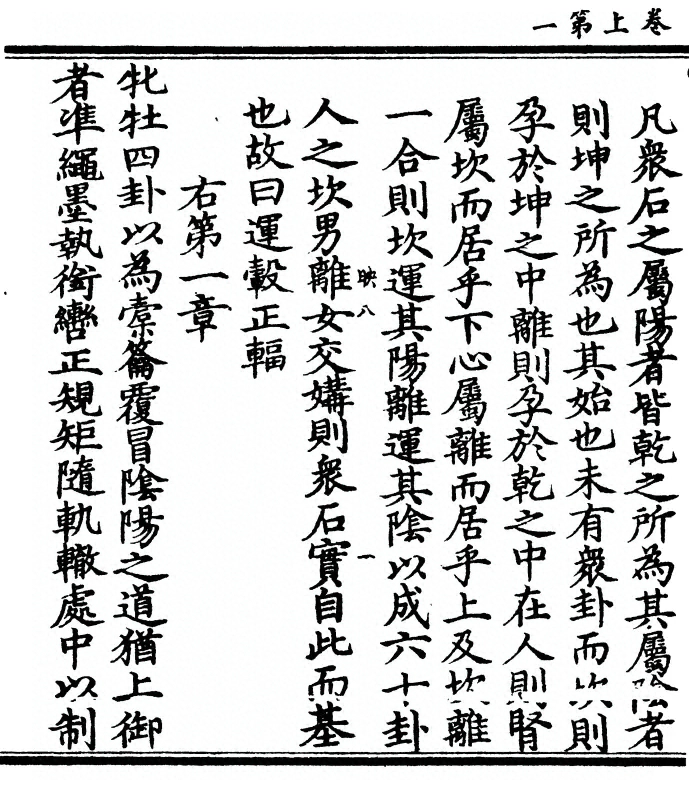 卷上第一
凡衆石之屬陽者皆乾之所為其屬陰者
則坤之所為也其始也未有衆卦而坎則
孕於坤之中離則孕於乾之中在人則腎
屬坎而居乎下心屬離而居乎上及坎離
一合則坎運其陽離運其陰以成六十卦
人之坎男離女交媾則衆石實自此而基
映八
一
也故曰運轂正輻
右第一章
牝牡四卦以為橐籥覆冒陰陽之道猶上御
者凖繩墨執銜轡正䂓矩隨軌轍處中以制